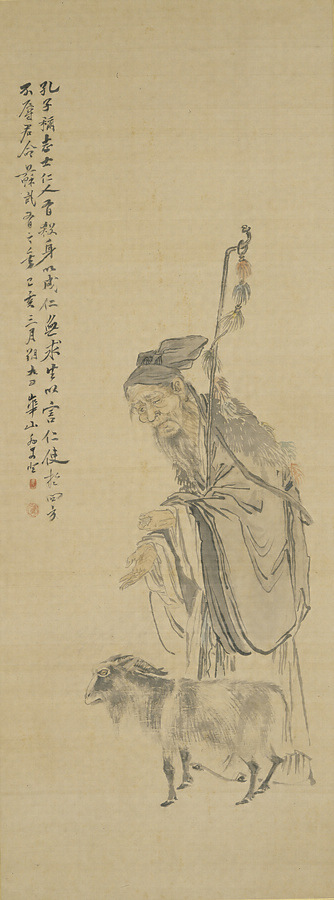 孔子稱志士仁人有殺身以成仁無求生以害仁使於四方
不辱君命蘇武有之矣己亥三月初九日華山外史登